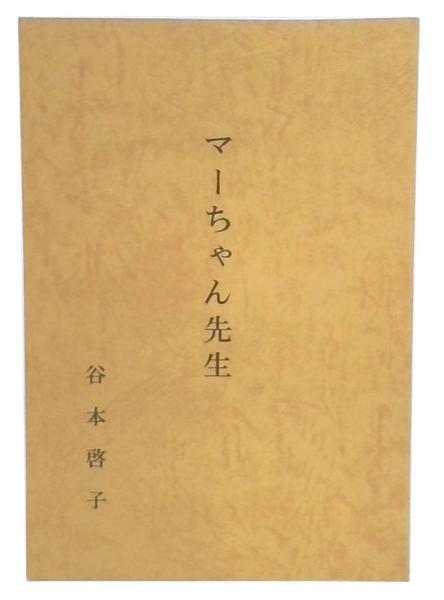 マーちゃん先生
谷本啓子